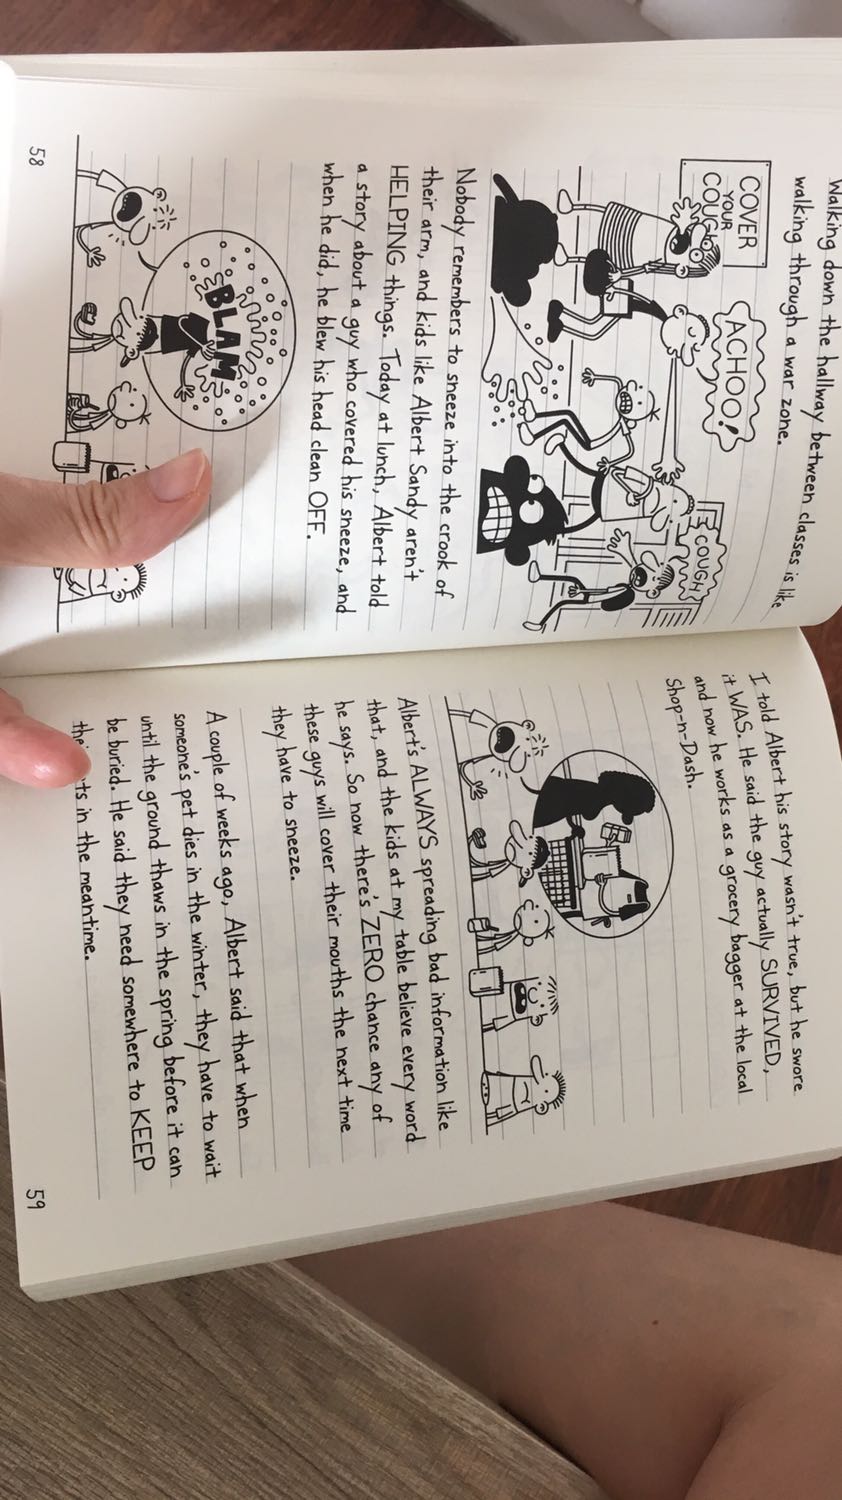 Walking down the hallway between classes is like
walking through a war zone.
COVER
YOUR
COUGH
ACHOO!
COUGH
Nobody remembers to sneeze into the crook of
their arm, and kids like Albert Sandy aren't
HELPING things. Today at lunch, Albert told
a story about a guy who covered his sneeze, and
when he did, he blew his head clean OFF.
BLAM
58
I told Albert his story wasn't true, but he swore
it WAS. He said the guy actually SURVIVED,
and now he works as a grocery bagger at the local
Shop-n-Dash.
Albert's ALWAYS spreading bad information like
that, and the kids at my table believe every word
he says. So now there's ZERO chance any of
these guys will cover their mouths the next time
they have to sneeze.
A couple of weeks ago, Albert said that when
someone's pet dies in the winter, they have to wait
until the ground thaws in the spring before it can
be buried. He said they need somewhere to KEEP
in the meantime.
59